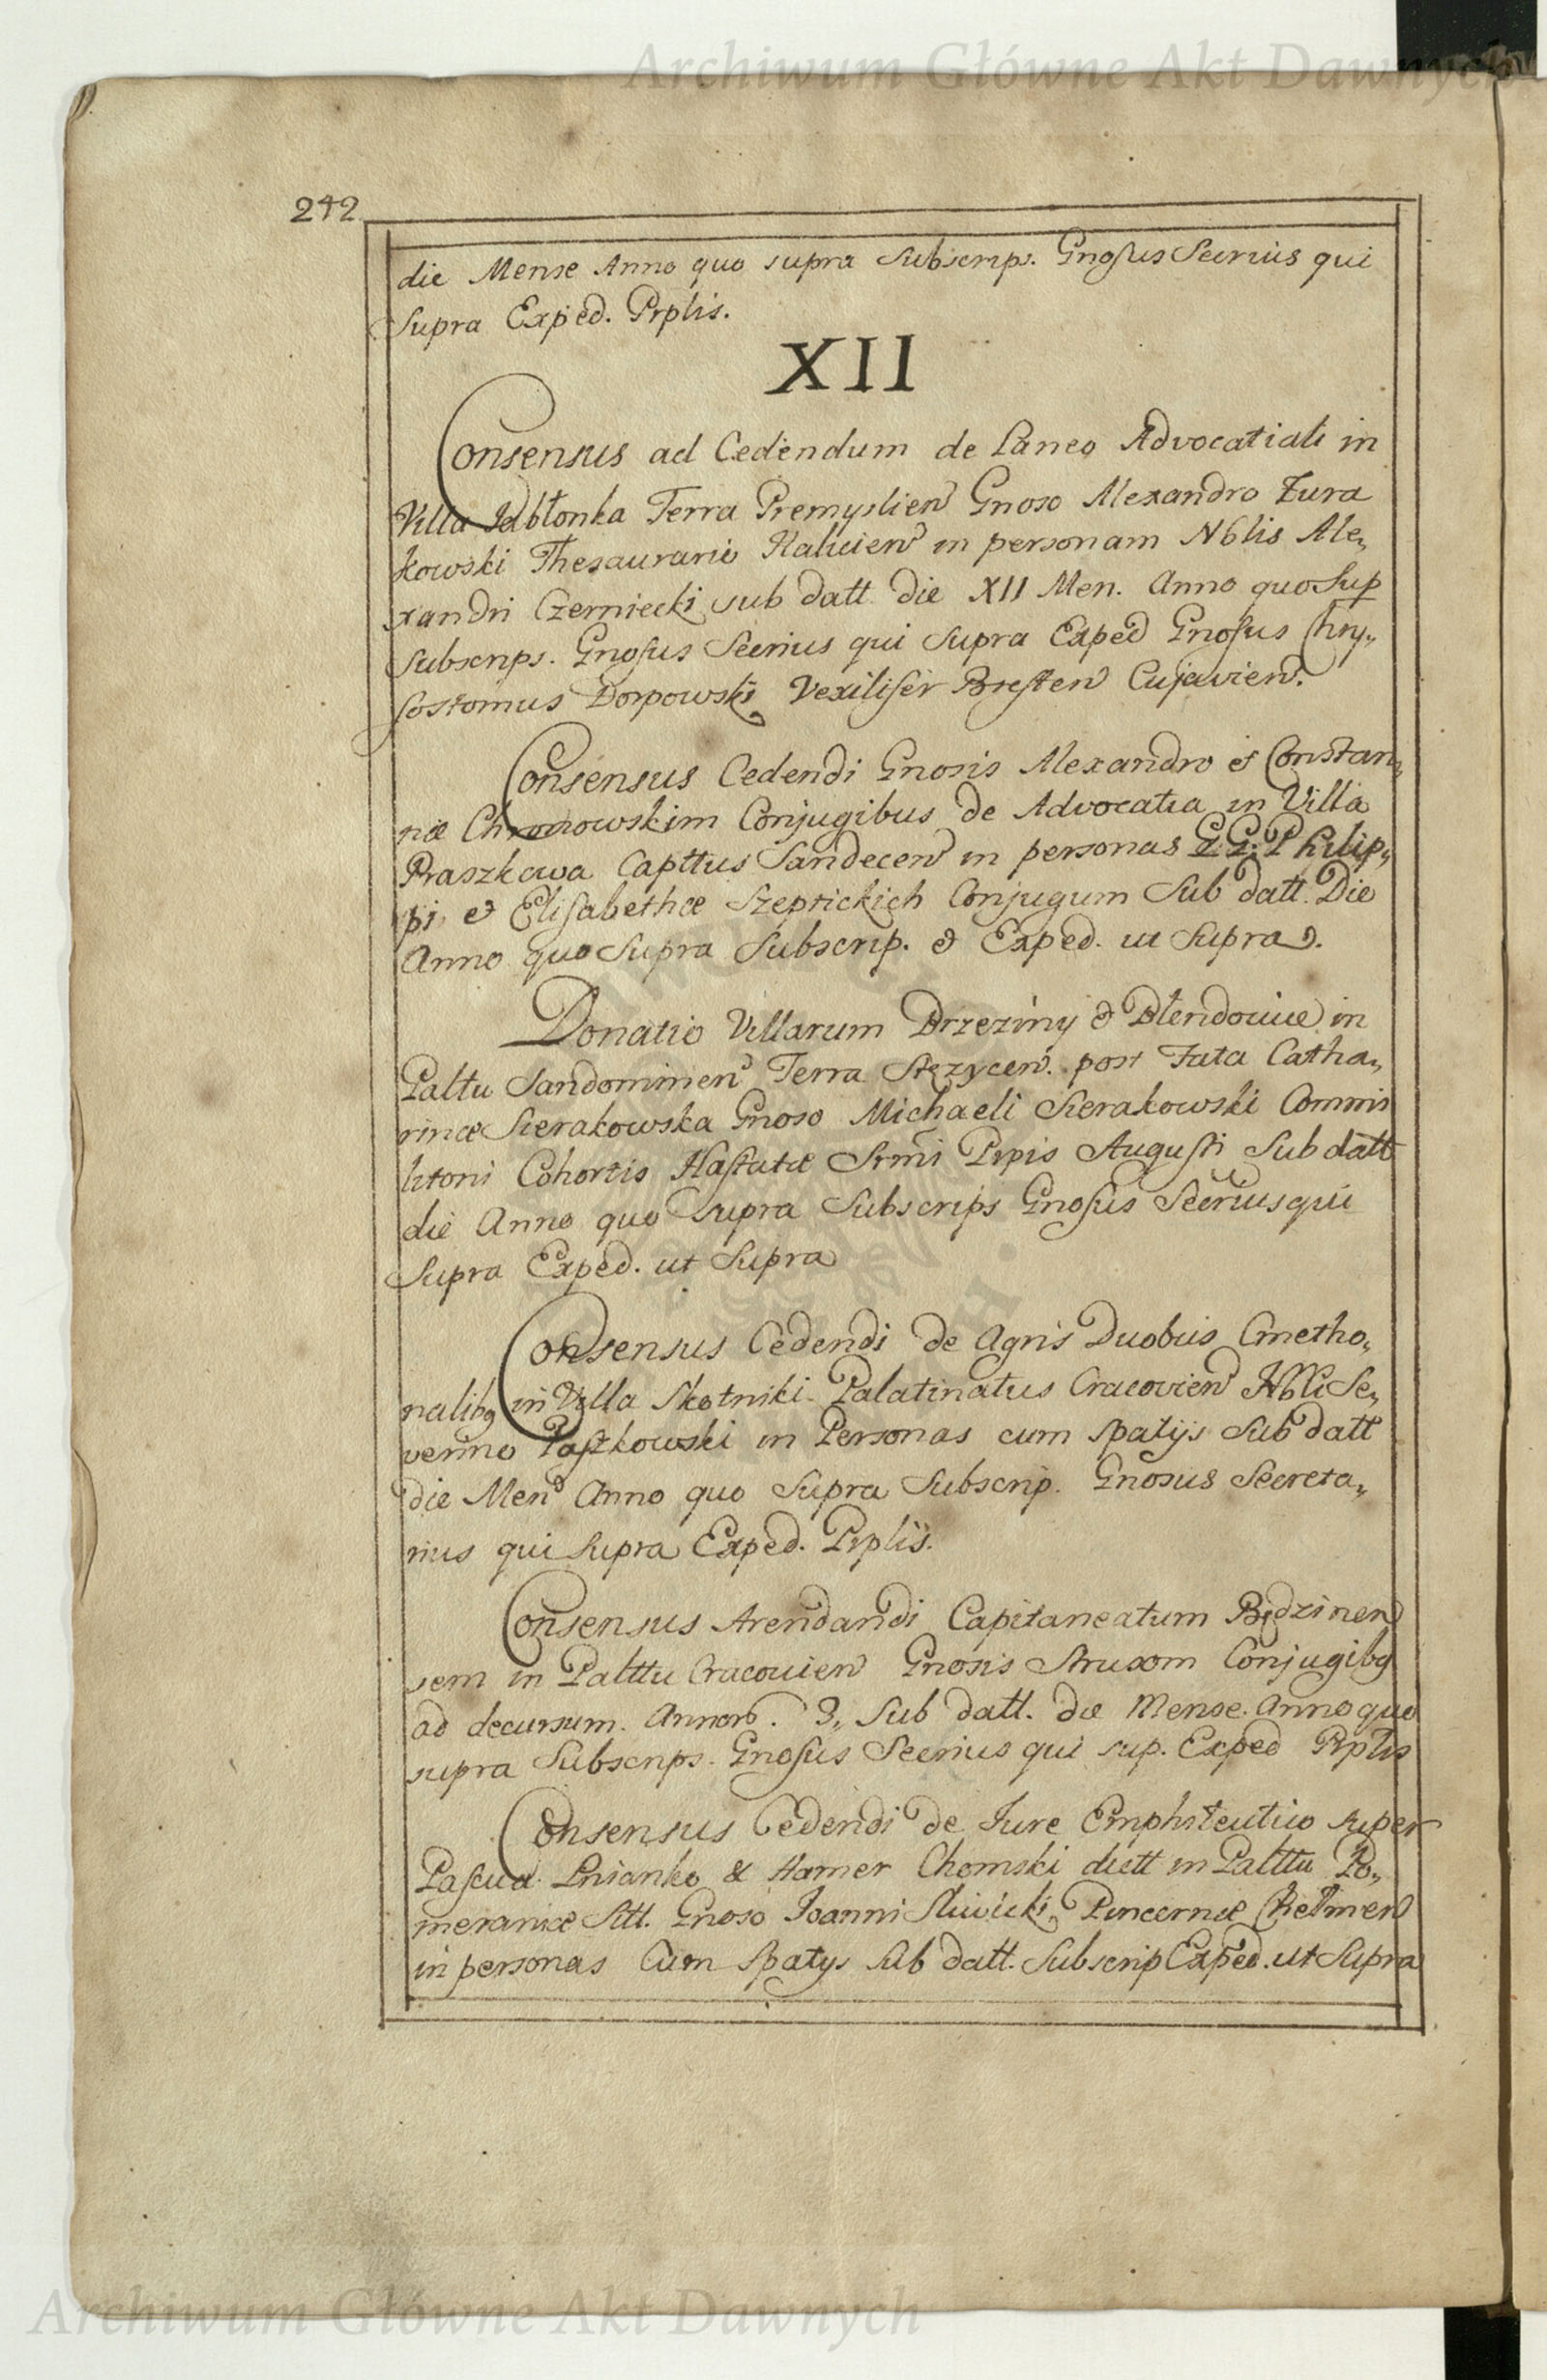 Archiwum Główne Akt Dawnych
242
die Mense Anno quo supra Subscrips. Gnosus Secrius qui
Supra Exped. Prplis.
XII
Consensus ad Cedendum de Laneo Advocatiali in
Villa Jabłonka Terra Premyslien Gnoso Alexandro Zura
kowski Thesaurario Halicien in personam Nblis Ale,,
xandri Czerniecki sub datt die XII Men. Anno quo Sup
Subscrips. Gnosus Secrius qui Supra Exped Gnosus Chry,,
sostomus Dorpowski Vexilifer Bresten Cujavien.
Consensus Cedendi Gnosis Alexandro et Constan,,
næ Chronowskim Conjugibus de Advocatia in Villa
Praszkowa Capttus Sandecen in personas G.G. Philip,,
pi et Elisabethæ Szeptickich Conjugum Sub datt. Die
Anno quo Supra Subscrip. et Exped. ut Supra.
Donatio Villarum Brzeziny et Błendowice in
Paltu Sandomirien Terra Stęzycen. post Fata Catha,,
rinæ Sierakowska Gnoso Michaeli Sierakowski Commi
litoni Cohortis Hastatæ Srmi Prpis Augusti Sub datt
die Anno quo supra Subscrips Gnosus Secrius qui
Supra Exped. ut Supra
Consensus Cedendi de Agris Duobus Cmetho,,
nalibq in Villa Skotniki Palatinatus Cracovien Nbli Se,,
verino Paszkowski in Personas cum spatijs Sub datt
die Men Anno quo Supra Subscrip. Gnosus Secreta,,
rius qui Supra Exped. Prplis.
Consensus Arendandi Capitaneatum Będzinen
sem in Palttu Cracovien Gnosis Strusom Conjugibq
ad decursum. Annor. 3,, Sub datt. die Mense. Anno quo
supra Subscrips. Gnosus Secrius qui sup. Exped Prplis
Consensus Cedendi de Jure Emphiteutico super
Pascua. Lnianko & Hamer Chomski dictt in Palttu Po,,
meraniæ Sitt. Gnoso Joanni Sliwicki Pincernæ Chelmen
in personas Cum Spatys Sub datt. Subscrip Exped. ut Supra
Archiwum Główne Akt Dawnych